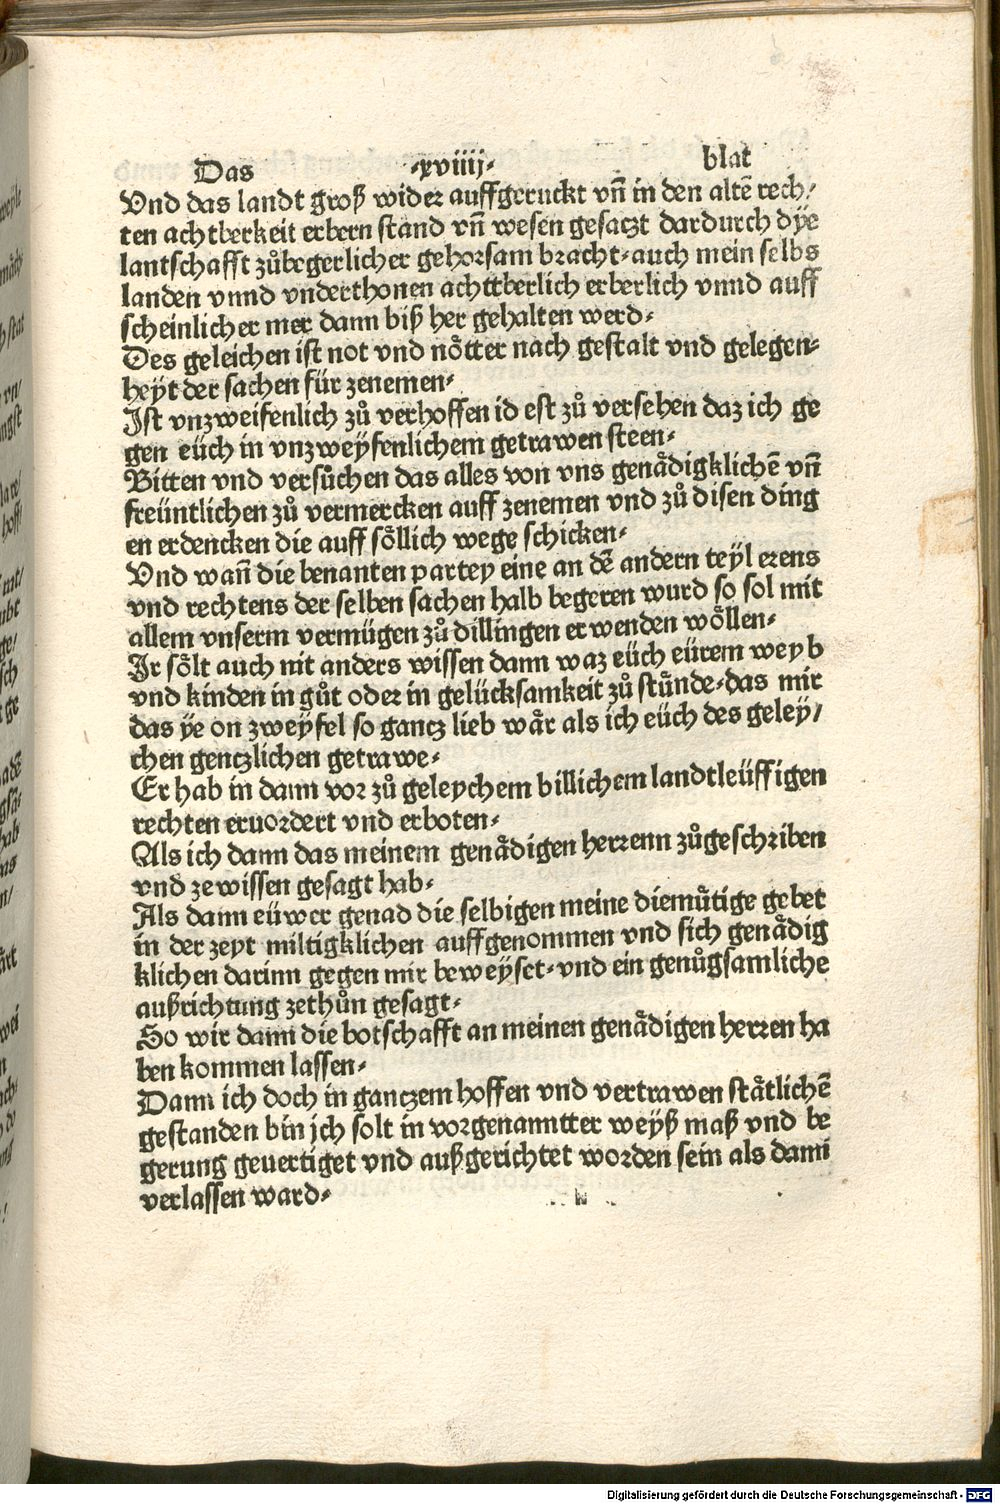 Das .xviiij. blat
Vnd das landt groß wider auffgeruckt vn̄ in den altē rech/
ten achtberkeit erbern stand vn̄ wesen gesaczt dardurch dÿe
lantschafft zůbegerlicher gehorsam bracht. auch mein selbs
landen vnnd vnderthonen achttberlich erberlich vnnd auff
scheinlicher mer dann biß her gehalten werd.
Des geleichen ist not vnd nötter nach gestalt vnd gelegen-
heÿt der sachen für zenemen.
Ist vnzweifenlich zů verhoffen id est zů versehen daz ich ge
gen eüch in vnzweÿfenlichem getrawen steen.
Bitten vnd versůchen das alles von vns genådigklichē vn̄
freüntlichen zů vermercken auff zenemen vnd zů disen ding
en erdencken die auff söllich wege schicken.
Vnd wan̄ die benanten partey eine an dē andern teÿl erens
vnd rechtens der selben sachen halb begeren wurd so sol mit
allem vnserm vermügen zů dillingen erwenden wöllen.
Ir sölt auch nit anders wissen dann waz eüch eürem weyb
vnd kinden in gůt oder in gelücksamkeit zů stünde. das mir
das ÿe on zweÿfel so gancz lieb wår als ich eüch des geley/
chen genczlichen getrawe.
Er hab in dann vor zů geleychem billichem landtleüffigen
rechten eruordert vnd erboten.
Als ich dann das meinem genådigen herrenn zůgeschriben
vnd ze wissen gesagt hab.
Als dann eüwer genad die selbigen meine diemůtige gebet
in der zeyt miltigklichen auffgenommen vnd sich genådig
klichen darinn gegen mir beweÿset. vnd ein genůgsamliche
außrichtung zethůn gesagt.
So wir dann die botschafft an meinen genådigen herren ha
ben kommen lassen.
Dann ich doch in ganczem hoffen vnd vertrawen ståtlichē
gestanden bin jch solt in vorgenanntter weyß maß vnd be
gerung geuertiget vnd außgerichtet worden sein als dann
verlassen ward.
Digitalisierung gefördert durch die Deutsche Forschungsgemeinschaft - DFG